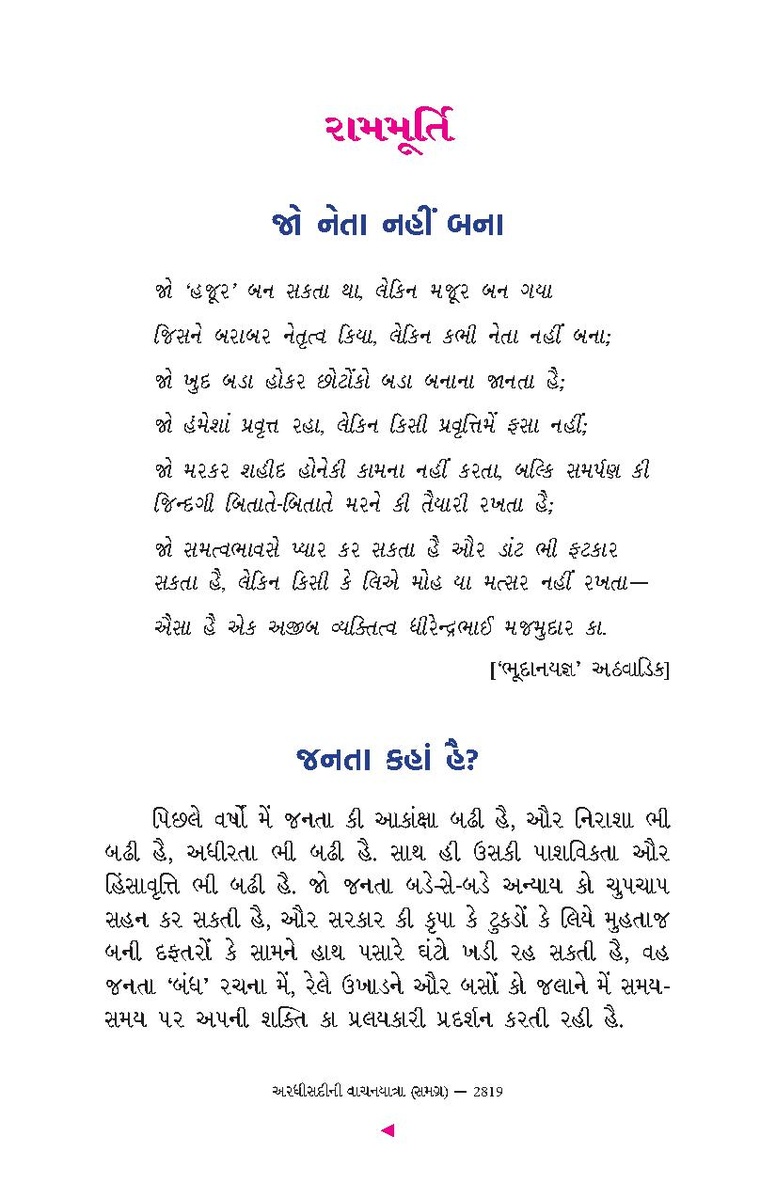 રામમૂર્તિ
જો નેતા નહીં બના
જો ‘હજૂર’ બન સકતા થા, લેકિન મજૂર બન ગયા
જિસને બરાબર નેતૃત્વ કિયા, લેકિન કભી નેતા નહીં બના;
જો ખુદ બડા હોકર છોટોંકો બડા બનાના જાનતા હૈ;
જો હંમેશાં પ્રવૃત્ત રહા, લેકિન કિસી પ્રવૃત્તિમેં ફસા નહીં;
જો મરકર શહીદ હોનેકી કામના નહીં કરતા, બલ્કિ સમર્પણ કી
જિન્દગી બિતાતે-બિતાતે મરને કી તૈયારી રખતા હૈ;
જો સમત્વભાવસે પ્યાર કર સકતા હૈ ઔર ડાંટ ભી ફટકાર
સકતા હૈ, લેકિન કિસી કે લિએ મોહ યા મત્સર નહીં રખતા—
ઐસા હૈ એક અજીબ વ્યક્તિત્વ ધીરેન્દ્રભાઈ મજમુદાર કા.
[‘ભૂદાનયજ્ઞ’ અઠવાડિક]
જનતા કહાં હૈ?
પિછલે વર્ષો મેં જનતા કી આકાંક્ષા બઢી હૈ, ઔર નિરાશા ભી
બઢી હૈ, અધીરતા ભી બઢી હૈ. સાથ હી ઉસકી પાશવિકતા ઔર
હિંસાવૃત્તિ ભી બઢી હૈ. જો જનતા બડે-સે-બડે અન્યાય કો ચુપચાપ
સહન કર સકતી હૈ, ઔર સરકાર કી કૃપા કે ટુકડોં કે લિયે મુહતાજ
બની દફતરોં કે સામને હાથ પસારે ઘંટો ખડી રહ સકતી હૈ, વહ
જનતા ‘બંધ’ રચના મેં, રેલે ઉખાડને ઔર બસોં કો જલાને મેં સમય-
સમય પર અપની શક્તિ કા પ્રલયકારી પ્રદર્શન કરતી રહી હૈ.
અરધીસદીની વાચનયાત્રા (સમગ્ર) — 2819